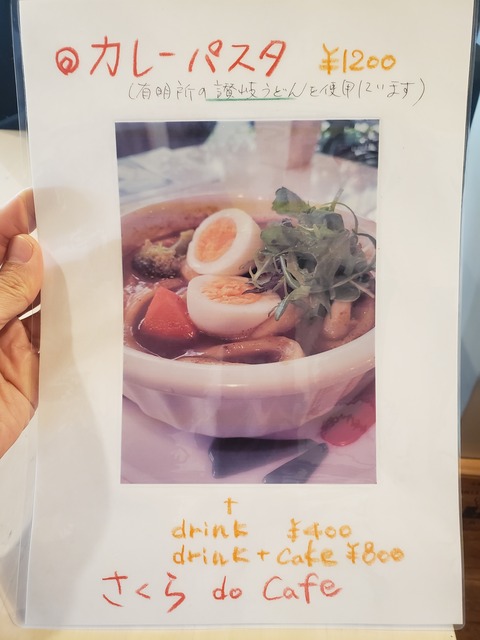 ◎カレーパスタ ¥1200
(有明所の讃岐うどんを使用しています)
+
drink ¥400
drink + cake ¥800
さくら do Cafe